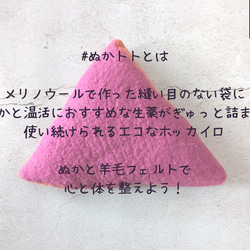 #ぬかトトとは
メリノウールで作った縫い目のない袋に
かと温活におすすめな生薬がぎゅっと詰ま
使い続けられるエコなホッカイロ
ぬかと羊毛フェルトで
心と体を整えよう！